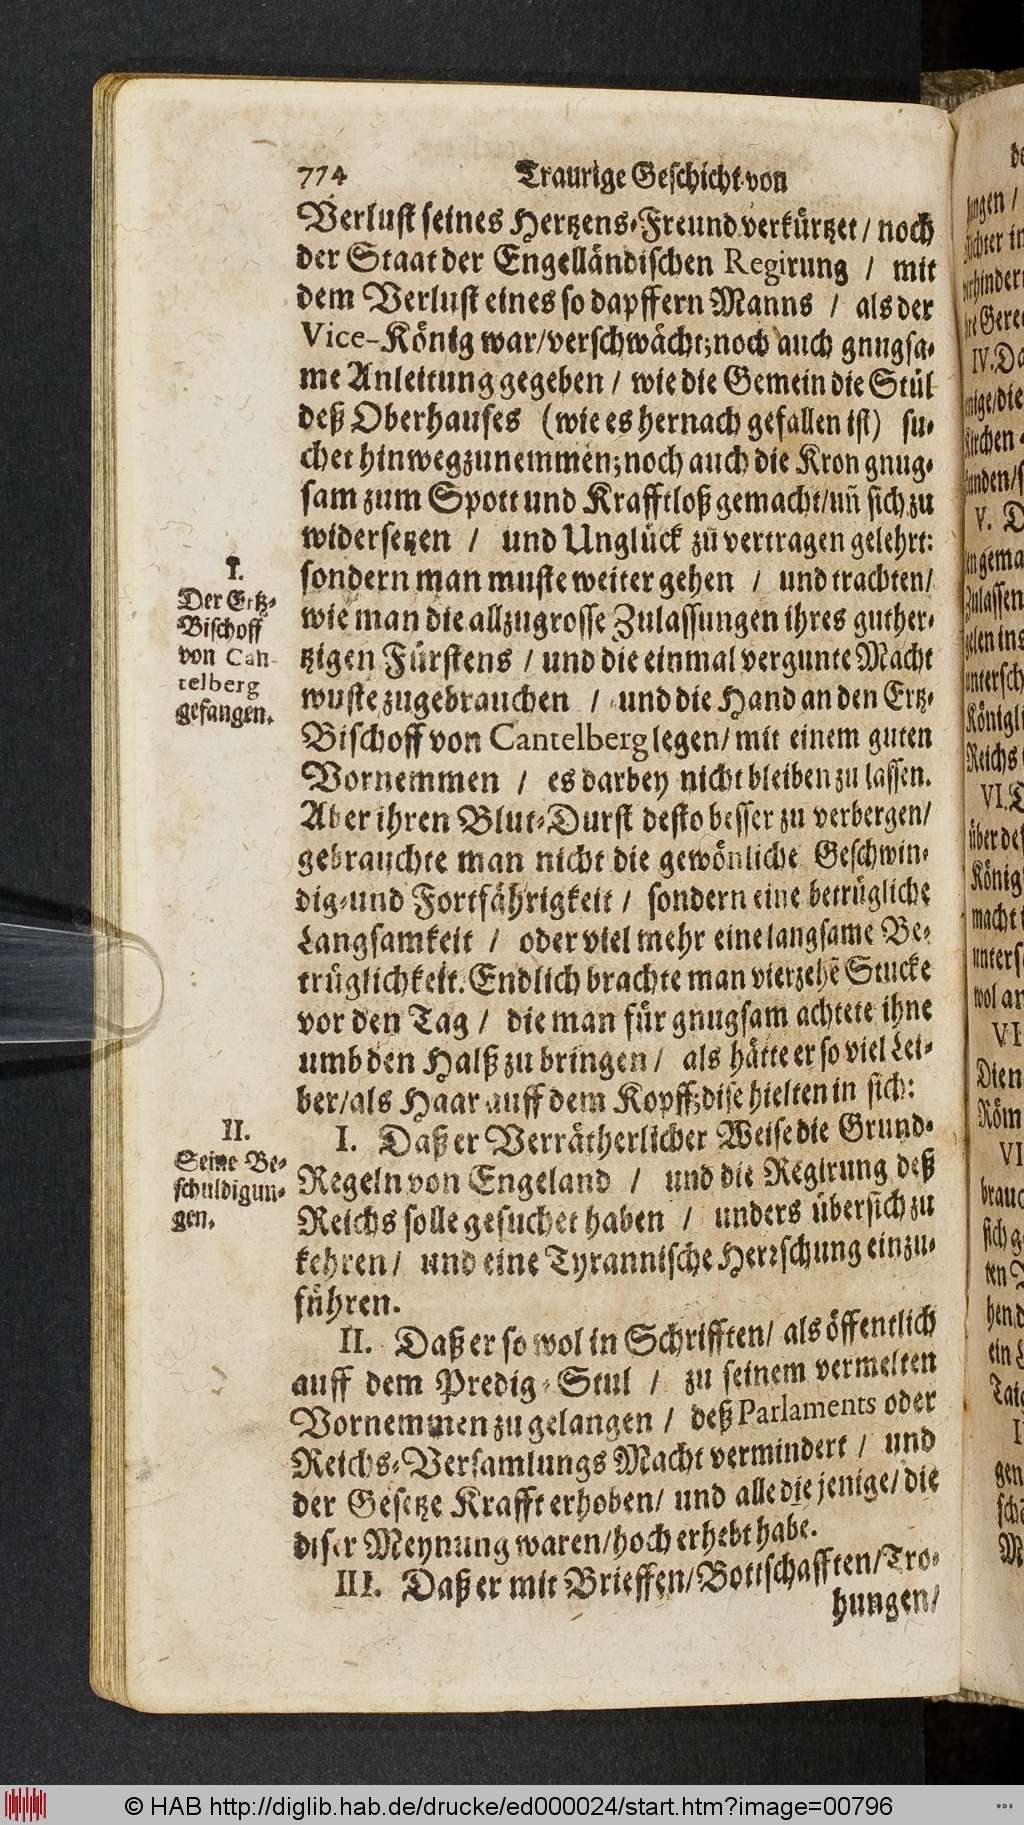 774 Traurige Geschicht von
Verlust seines Hertzens-Freund verkürtzet / noch
der Staat der Engelländischen Regirung / mit
dem Verlust eines so dapffern Manns / als der
Vice-König war/verschwächt; noch auch gnugsa-
me Anleitung gegeben / wie die Gemein die Stül
deß Oberhauses (wie es hernach gefallen ist) su-
chet hinwegzunemmen; noch auch die Kron gnug-
sam zum Spott und Krafftloß gemacht/uñ sich zu
widersetzen / und Unglück zu vertragen gelehrt:
sondern man muste weiter gehen / und trachten/
wie man die allzugrosse Zulassungen ihres guther-
tzigen Fürstens / und die einmal vergunte Macht
wuste zugebrauchen / und die Hand an den Ertz-
Bischoff von Cantelberg legen/ mit einem guten
Vornemmen / es darbey nicht bleiben zu lassen.
Aber ihren Blut-Durst desto besser zu verbergen/
gebrauchte man nicht die gewönliche Geschwin-
dig-und Fortfährigkeit / sondern eine betrügliche
Langsamkeit / oder viel mehr eine langsame Be-
trüglichkeit. Endlich brachte man vierzehẽ Stucke
vor den Tag / die man für gnugsam achtete ihne
umb den Halß zu bringen / als hätte er so viel Lei-
ber/als Haar auff dem Kopff; dise hielten in sich:
I. Daß er Verrätherlicher Weise die Grund-
Regeln von Engeland / und die Regirung deß
Reichs solle gesuchet haben / unders übersich zu
kehren / und eine Tyrannische Herrschung einzu-
führen.
II. Daß er so wol in Schrifften/ als öffentlich
auff dem Predig-Stul / zu seinem vermelten
Vornemmen zu gelangen / deß Parlaments oder
Reichs-Versamlungs Macht vermindert / und
der Gesetze Krafft erhoben/ und alle die jenige/ die
diser Meynung waren/hoch erhebt habe.
III. Daß er mit Brieffen/Bottschafften/Tro-
hungen/
I.
Der Ertz-
Bischoff
von Can-
telberg
gefangen.
II.
Seine Be-
schuldigun-
gen.
© HAB http://diglib.hab.de/drucke/ed000024/start.htm?image=00796